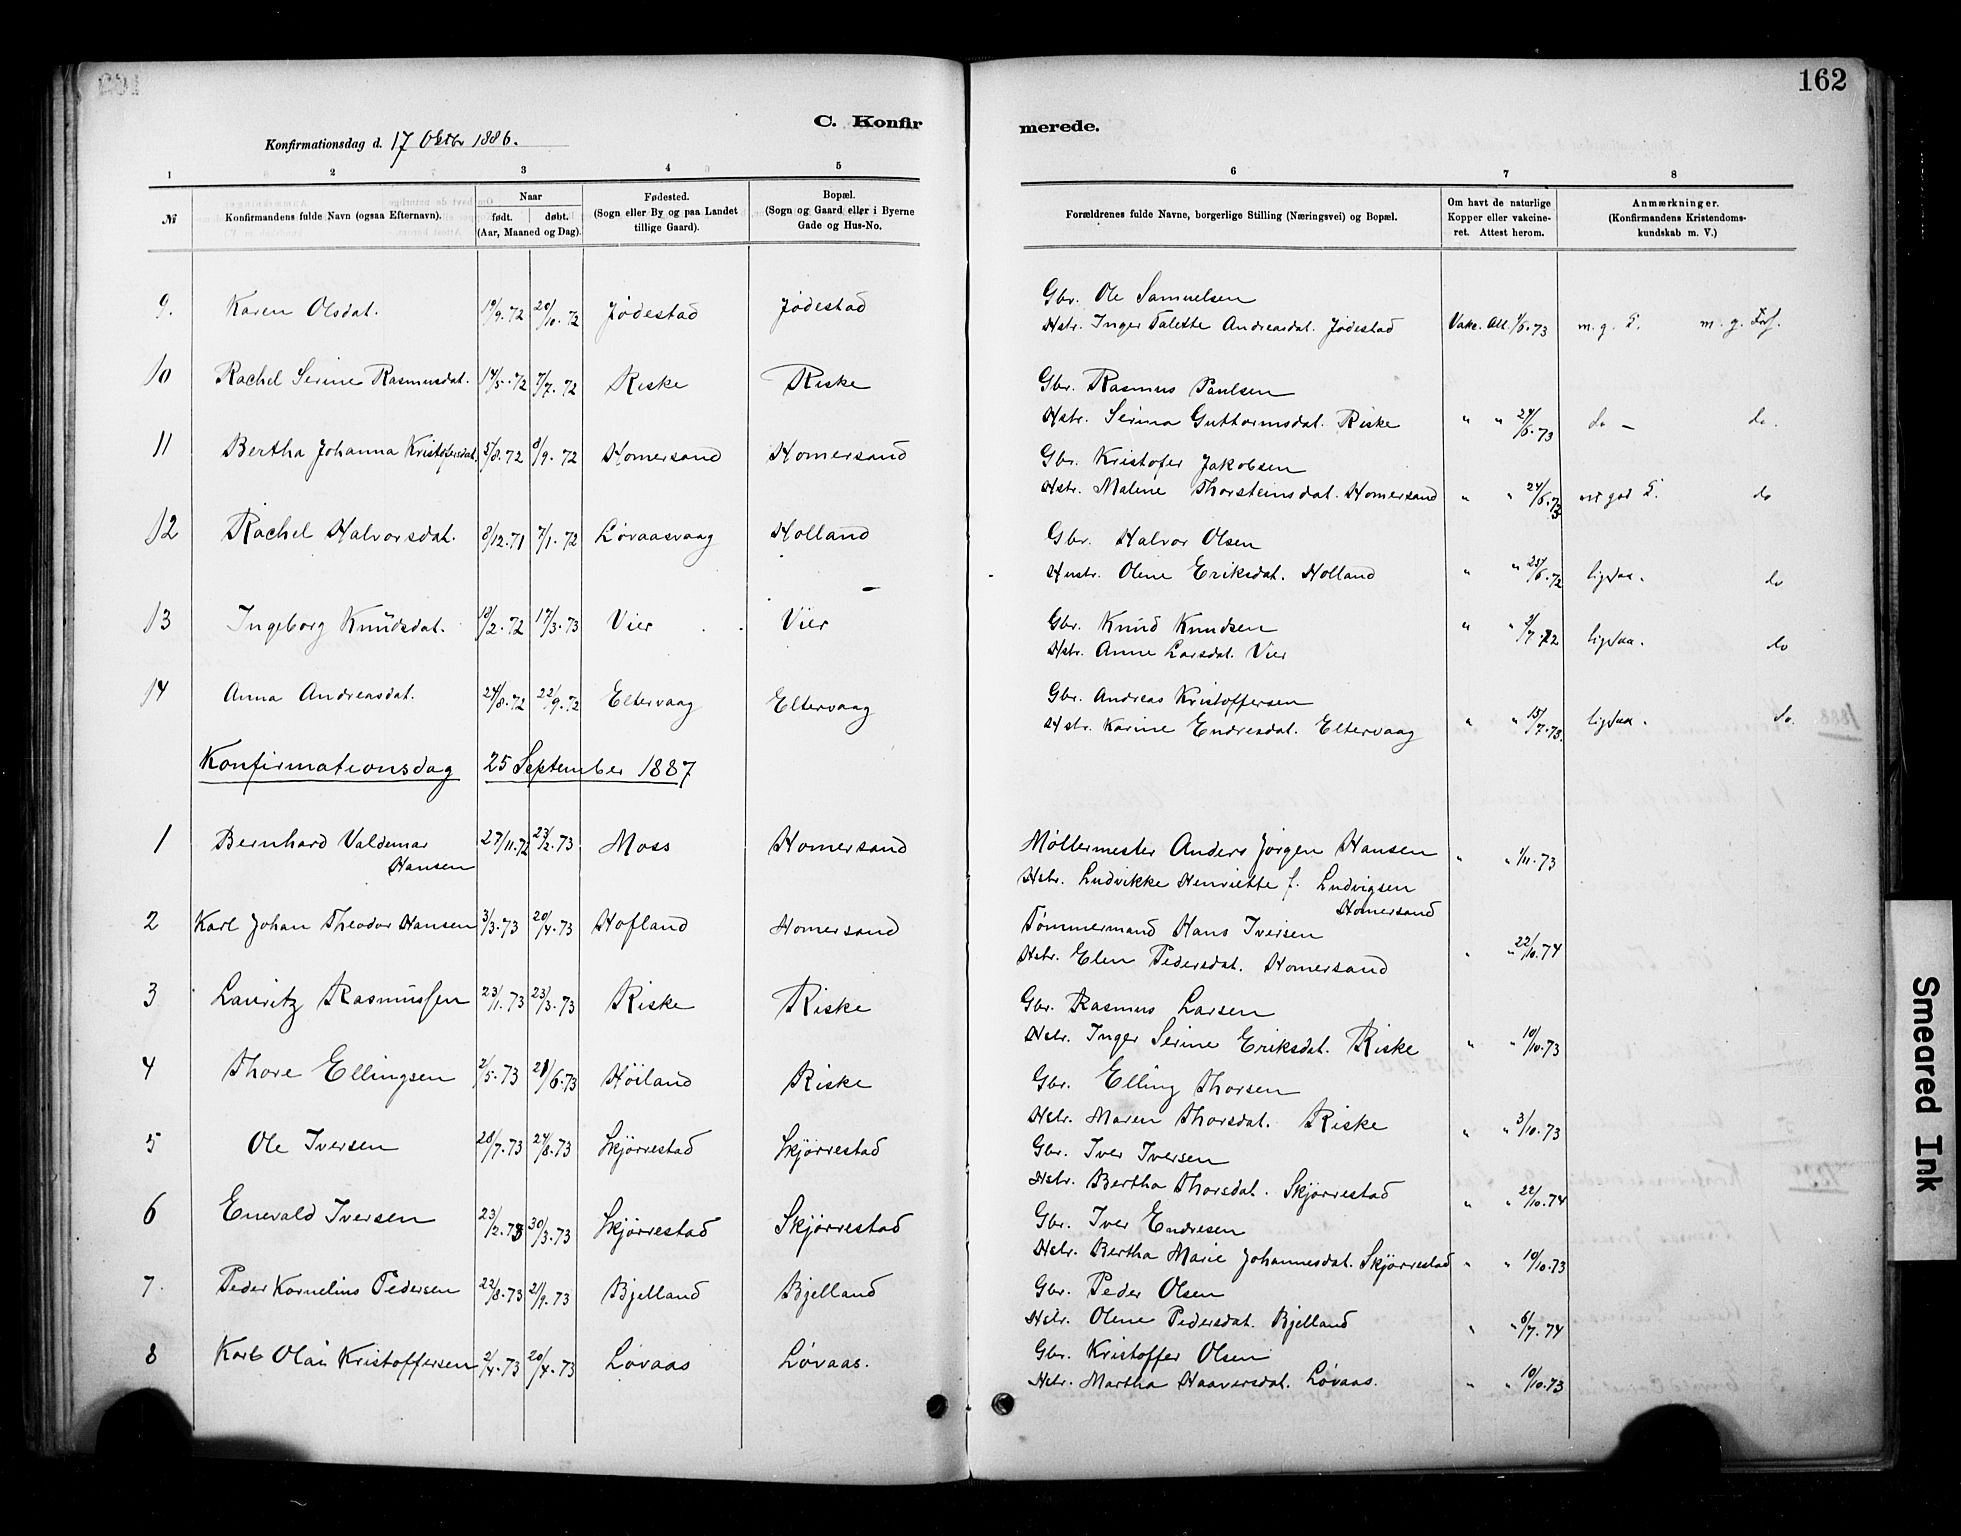 162
C. Konfirmerede.
Konfirmationsdag d. 17 Oktbr 1886.
1 2 3 4 5 6 7 8
№
Konfirmandens fulde Navn (ogsaa Efternavn).
Naar
født. døbt.
(Aar, Maaned og Dag).
Fødested.
(Sogn eller By og paa Landet
tillige Gaard).
Bopæl.
(Sogn og Gaard eller i Byerne
Gade og Hus-No.
Forældrenes fulde Navne, borgerlige Stilling (Næringsvei) og Bopæl.
Om havt de naturlige
Kopper eller vakcine-
ret. Attest herom.
Anmærkninger.
(Konfirmandens Kristendoms-
kundskab m. V.)
9. Karen Olsdat. 19/9.72 20/10.72 Jødestad Jødestad Gbr. Ole Samuelsen
Hstr. Inger Talette Andreasdat. Jødestad Vakc. Att. 1/6.73 m. g. T. m. g. Frf.
10 Rachel Serine Rasmusdat. 14/5.72 7/7.72 Riske Riske Gbr. Rasmus Paulsen
Hstr. Serina Guttormsdat. Riske " " 24/6.73 do — do.
11 Bertha Johanna Kristofersdat. 5/8.72 8/9.72 Homersand Homersand Gbr. Kristofer Jakobsen
Hstr. Malene Thorsteinsdat. Homersand " " 24/6.73 god T. do
12 Rachel Halvorsdat. 8/12.71 7/1.72 Løvaasvaag Holland Gbr. Halvor Olsen
Hustr. Olene Eriksdat. Holland " " 25/6.72 ligesaa. do
13 Ingeborg Knudsdat. 18/2.72 17/3.73 Vier Vier Gbr. Knud Knudsen " " 2/7.72 ligesaa. do
Hstr. Anne Larsdat. Vier
14 Anna Andreasdat. 24/8.72 22/9.72 Eltervaag Eltervaag Gbr. Andreas Kristoffersen
Hstr. Karine Endresdat. Eltervaag " " 15/7.73. ligesaa. do.
Konfirmationsdag 25 September 1887
1 Bernhard Valdemar Hansen 27/11.72 23/2.73 Moss Homersand Møllermester Anders Jørgen Hansen " " 1/11.73
Hstr. Ludvikke Henriette f. Ludvigsen
Homersand
2 Karl Johan Theodor Hansen 3/3.73 20/4.73 Hofland Homersand Tømmermand Hans Iversen
Hstr. Elen Pedersdat. Homersand " " 22/10.74
3 Lauritz Rasmussen 23/1.73 23/3.73 Riske Riske Gbr. Rasmus Larsen
Hstr. Inger Serine Eriksdat. Riske " " 10/10.73
4 Thore Ellingsen 2/5.73 21/6.73 Høiland Riske Gbr. Elling Thorsen
Hstr. Maren Thorsdat. Riske " " 3/10.73
5 Ole Iversen 20/7.73 24/8.73 Skjørrestad Skjørrestad Gbr. Iver Iversen
Hstr. Bertha Thorsdat. Skjørrestad " " 22/10.74
6 Enevald Iversen 23/2.73 30/3.73 Skjørrestad Skjørrestad Gbr. Iver Endresen
Hstr. Bertha Marie Johannesdat. Skjørrestad " " 10/10.73
7. Peder Kornelius Pedersen 22/8.73 21/9.73 Bjelland Bjelland Gbr. Peder Olsen
Hstr. Olene Pedersdat. Bjelland " " 6/7.74
8 Karl Olai Kristoffersen 2/4.73 20/4.73 Løvaas Løvaas. Gbr. Kristoffer Olsen
Hstr. Martha Haaversdat. Løvaas. " " 10/10.73
Smeared Ink